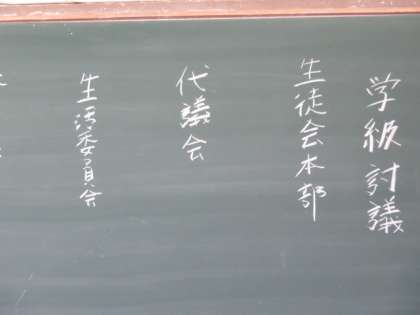 学級討議
生徒会本部
代議会
生活委員会